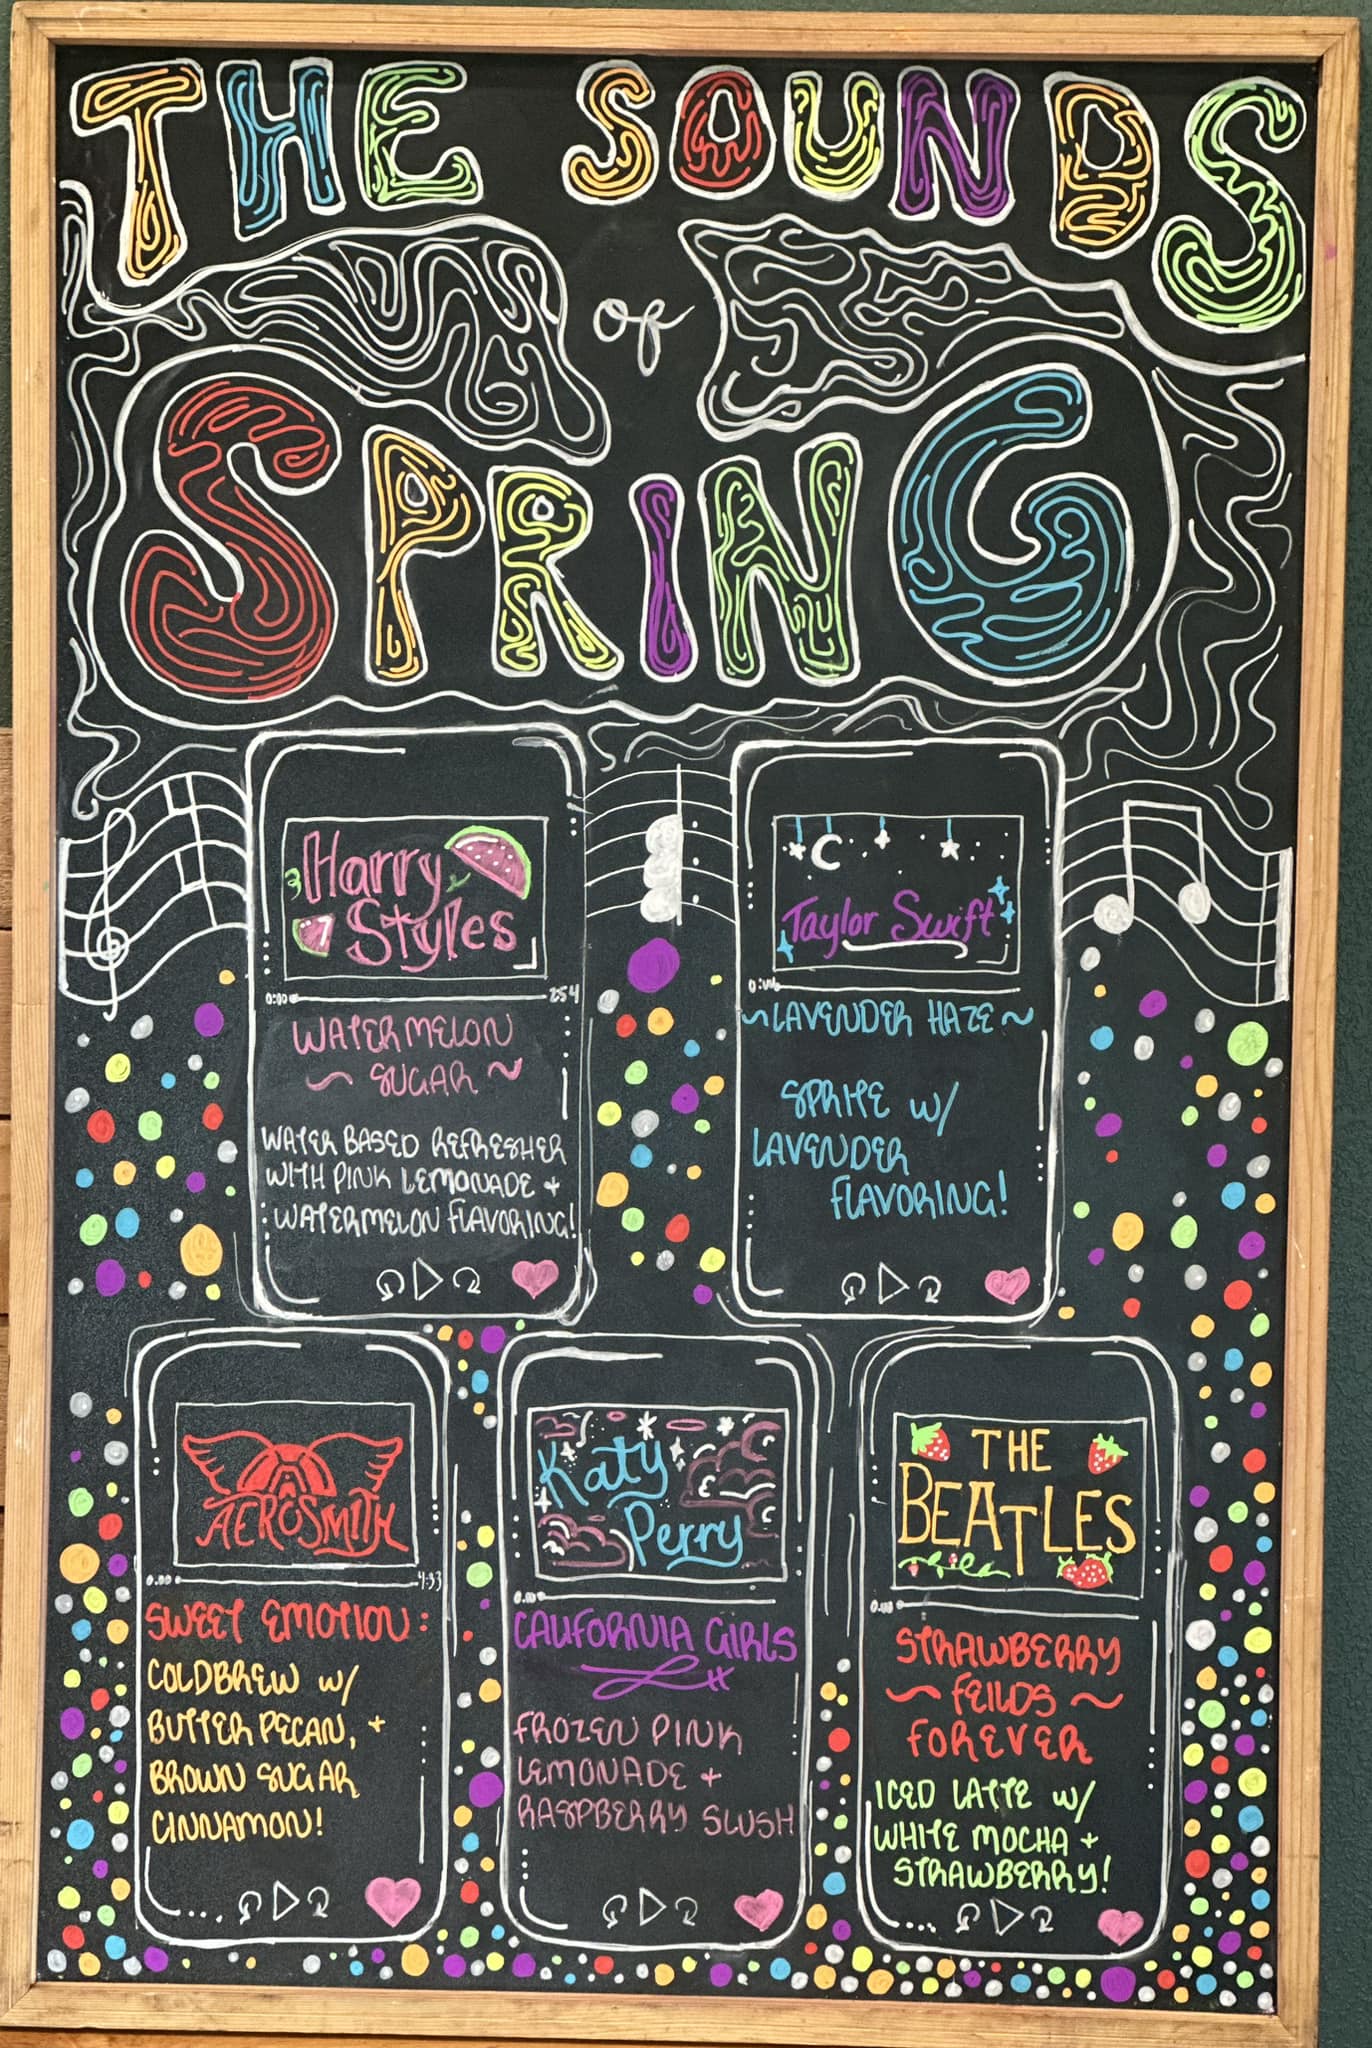 THE SOUNDS
of
SPRING
Harry
Styles
0:00
2:54
WATERMELON
~ SUGAR ~
WATER BASED REFRESHER
WITH PINK LEMONADE +
WATERMELON FLAVORING!
Taylor Swift
~LAVENDER HAZE~
SPRITE W/
LAVENDER
FLAVORING!
AEROSMITH
0:00
4:33
SWEET EMOTION:
COLDBREW W/
BUTTER PECAN, +
BROWN SUGAR
CINNAMON!
Katy
Perry
0:00
CALIFORNIA GIRLS
FROZEN PINK
LEMONADE +
RASPBERRY SLUSH
THE
BEATLES
0:00
STRAWBERRY
~ FEILDS ~
FOREVER
ICED LATTE W/
WHITE MOCHA +
STRAWBERRY!